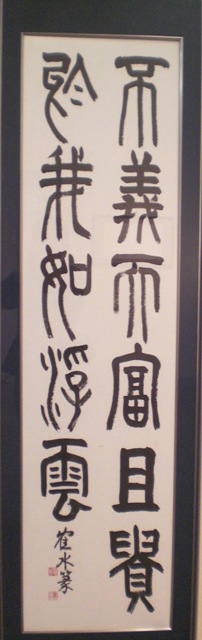 不義而富且貴
於我如浮雲
崔水篆